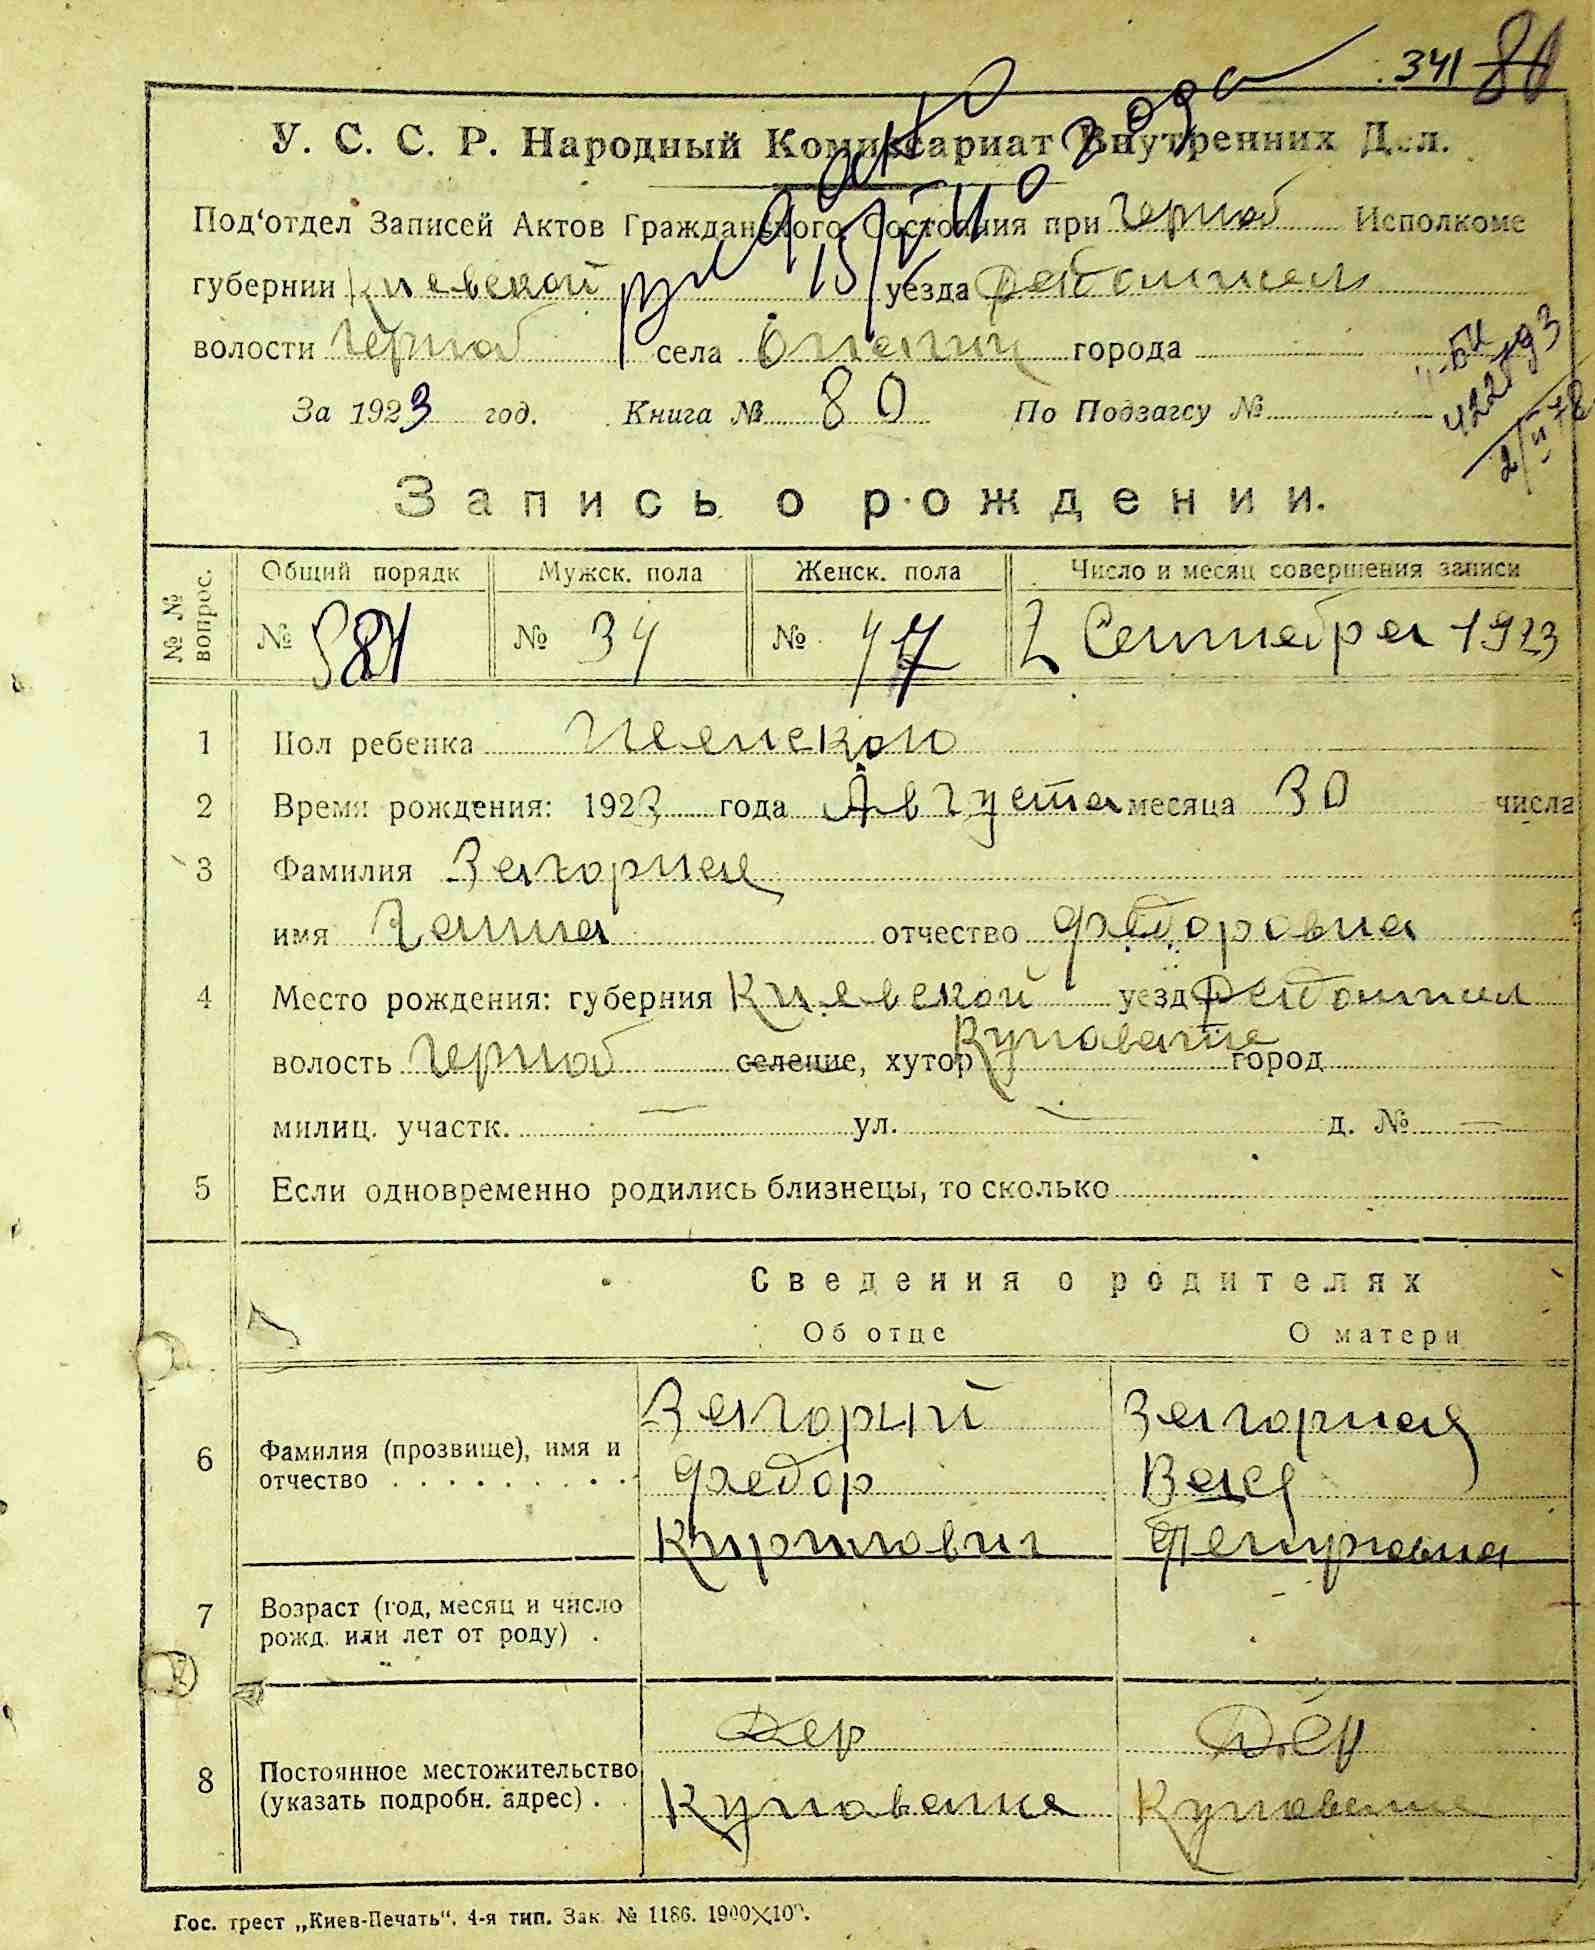 341 80
У. С. С. Р. Народный Комиссариат Внутренних Дел.
Под'отдел Записей Актов Гражданского Состояния при Черноб Исполкоме
губернии Киевской уезда
волости Черноб села города
За 1923 год. Книга № 80 По Подзагсу №
Запись о рождении.
№ № вопрос. Общий порядк Мужск. пола Женск. пола Число и месяц совершения записи
№ 81 № 34 № 47 2 Сентебря 1923
1 Пол ребенка Женского
2 Время рождения: 1923 года Августа месяца 30 числа
3 Фамилия Загорная
имя Ганна отчество Федоровна
4 Место рождения: губерния Киевской уезд
волость Черноб селение, хутор Куповатое город
милиц. участк. — ул. — д. № —
5 Если одновременно родились близнецы, то сколько
Сведения о родителях
Об отце О матери
6 Фамилия (прозвище), имя и отчество
Загорный Загорная
Федор
Кирилович Петровна
7 Возраст (год, месяц и число рожд. или лет от роду)
8 Постоянное местожительство (указать подробн. адрес)
Дер Дер
Гос. трест „Киев-Печать“. 4-я тип. Зак. № 1186.